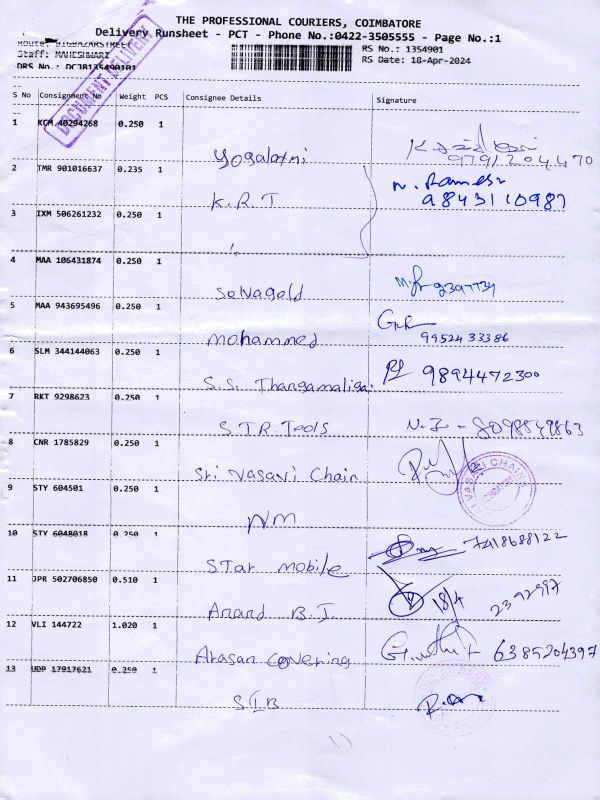 THE PROFESSIONAL COURIERS, COIMBATORE
Delivery Runsheet - PCT - Phone No.:0422-3505555 - Page No.:1
Route: BIGBAZARSTREET RS No.: 1354901
Staff: MAHESHWARI RS Date: 18-Apr-2024
DRS No.: DCJB135490101
DOCUMENT DELIVERY
S No Consignment No Weight PCS Consignee Details Signature
1 KGM 40294268 0.250 1
Yogalaxmi 9791204470
2 TMR 901016637 0.235 1
K.R.T N. Ramesh
9843110987
3 IXM 506261232 0.250 1
4 MAA 106431874 0.250 1
Selvagold
5 MAA 943695496 0.250 1
Mohammed 9952433386
6 SLM 344144063 0.250 1
S.S. Thangamaligai 9894472300
7 RKT 9298623 0.250 1
S.T.R. Tools
8 CNR 1785829 0.250 1
Sri Vasavi Chain
VASAVI CHAINS
9 STY 604501 0.250 1
NM
10 STY 6048018 0.250 1
Star Mobile 7418688122
11 JPR 502706850 0.510 1
Anand B.J. 18/4
12 VLI 144722 1.020 1
Arasan Covering 6385204397
13 UDP 17917621 0.250 1
SIB